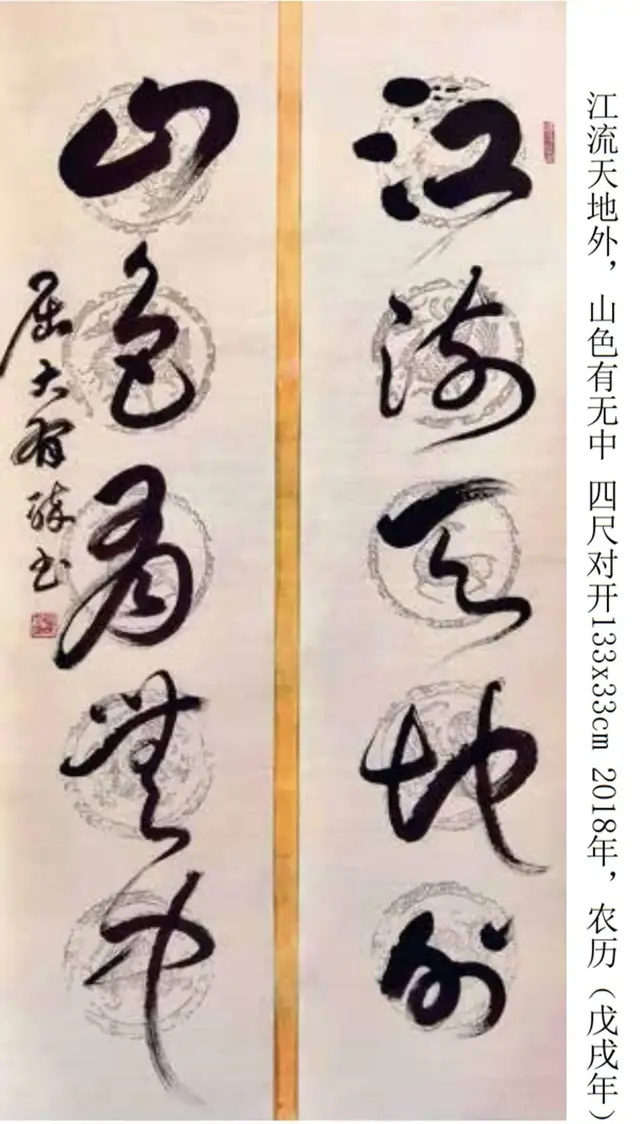 江流天地外， 山色有无中 四尺对开133x33cm 2018年，农历（戊戌年）
江流天地外
山色有無中
屈大有书